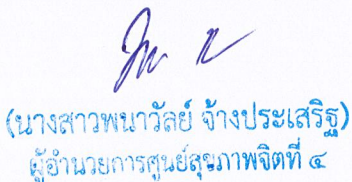 (นางสาวพนาวัลย์ จ้างประเสริฐ)
ผู้อำนวยการศูนย์สุขภาพจิตที่ ๔